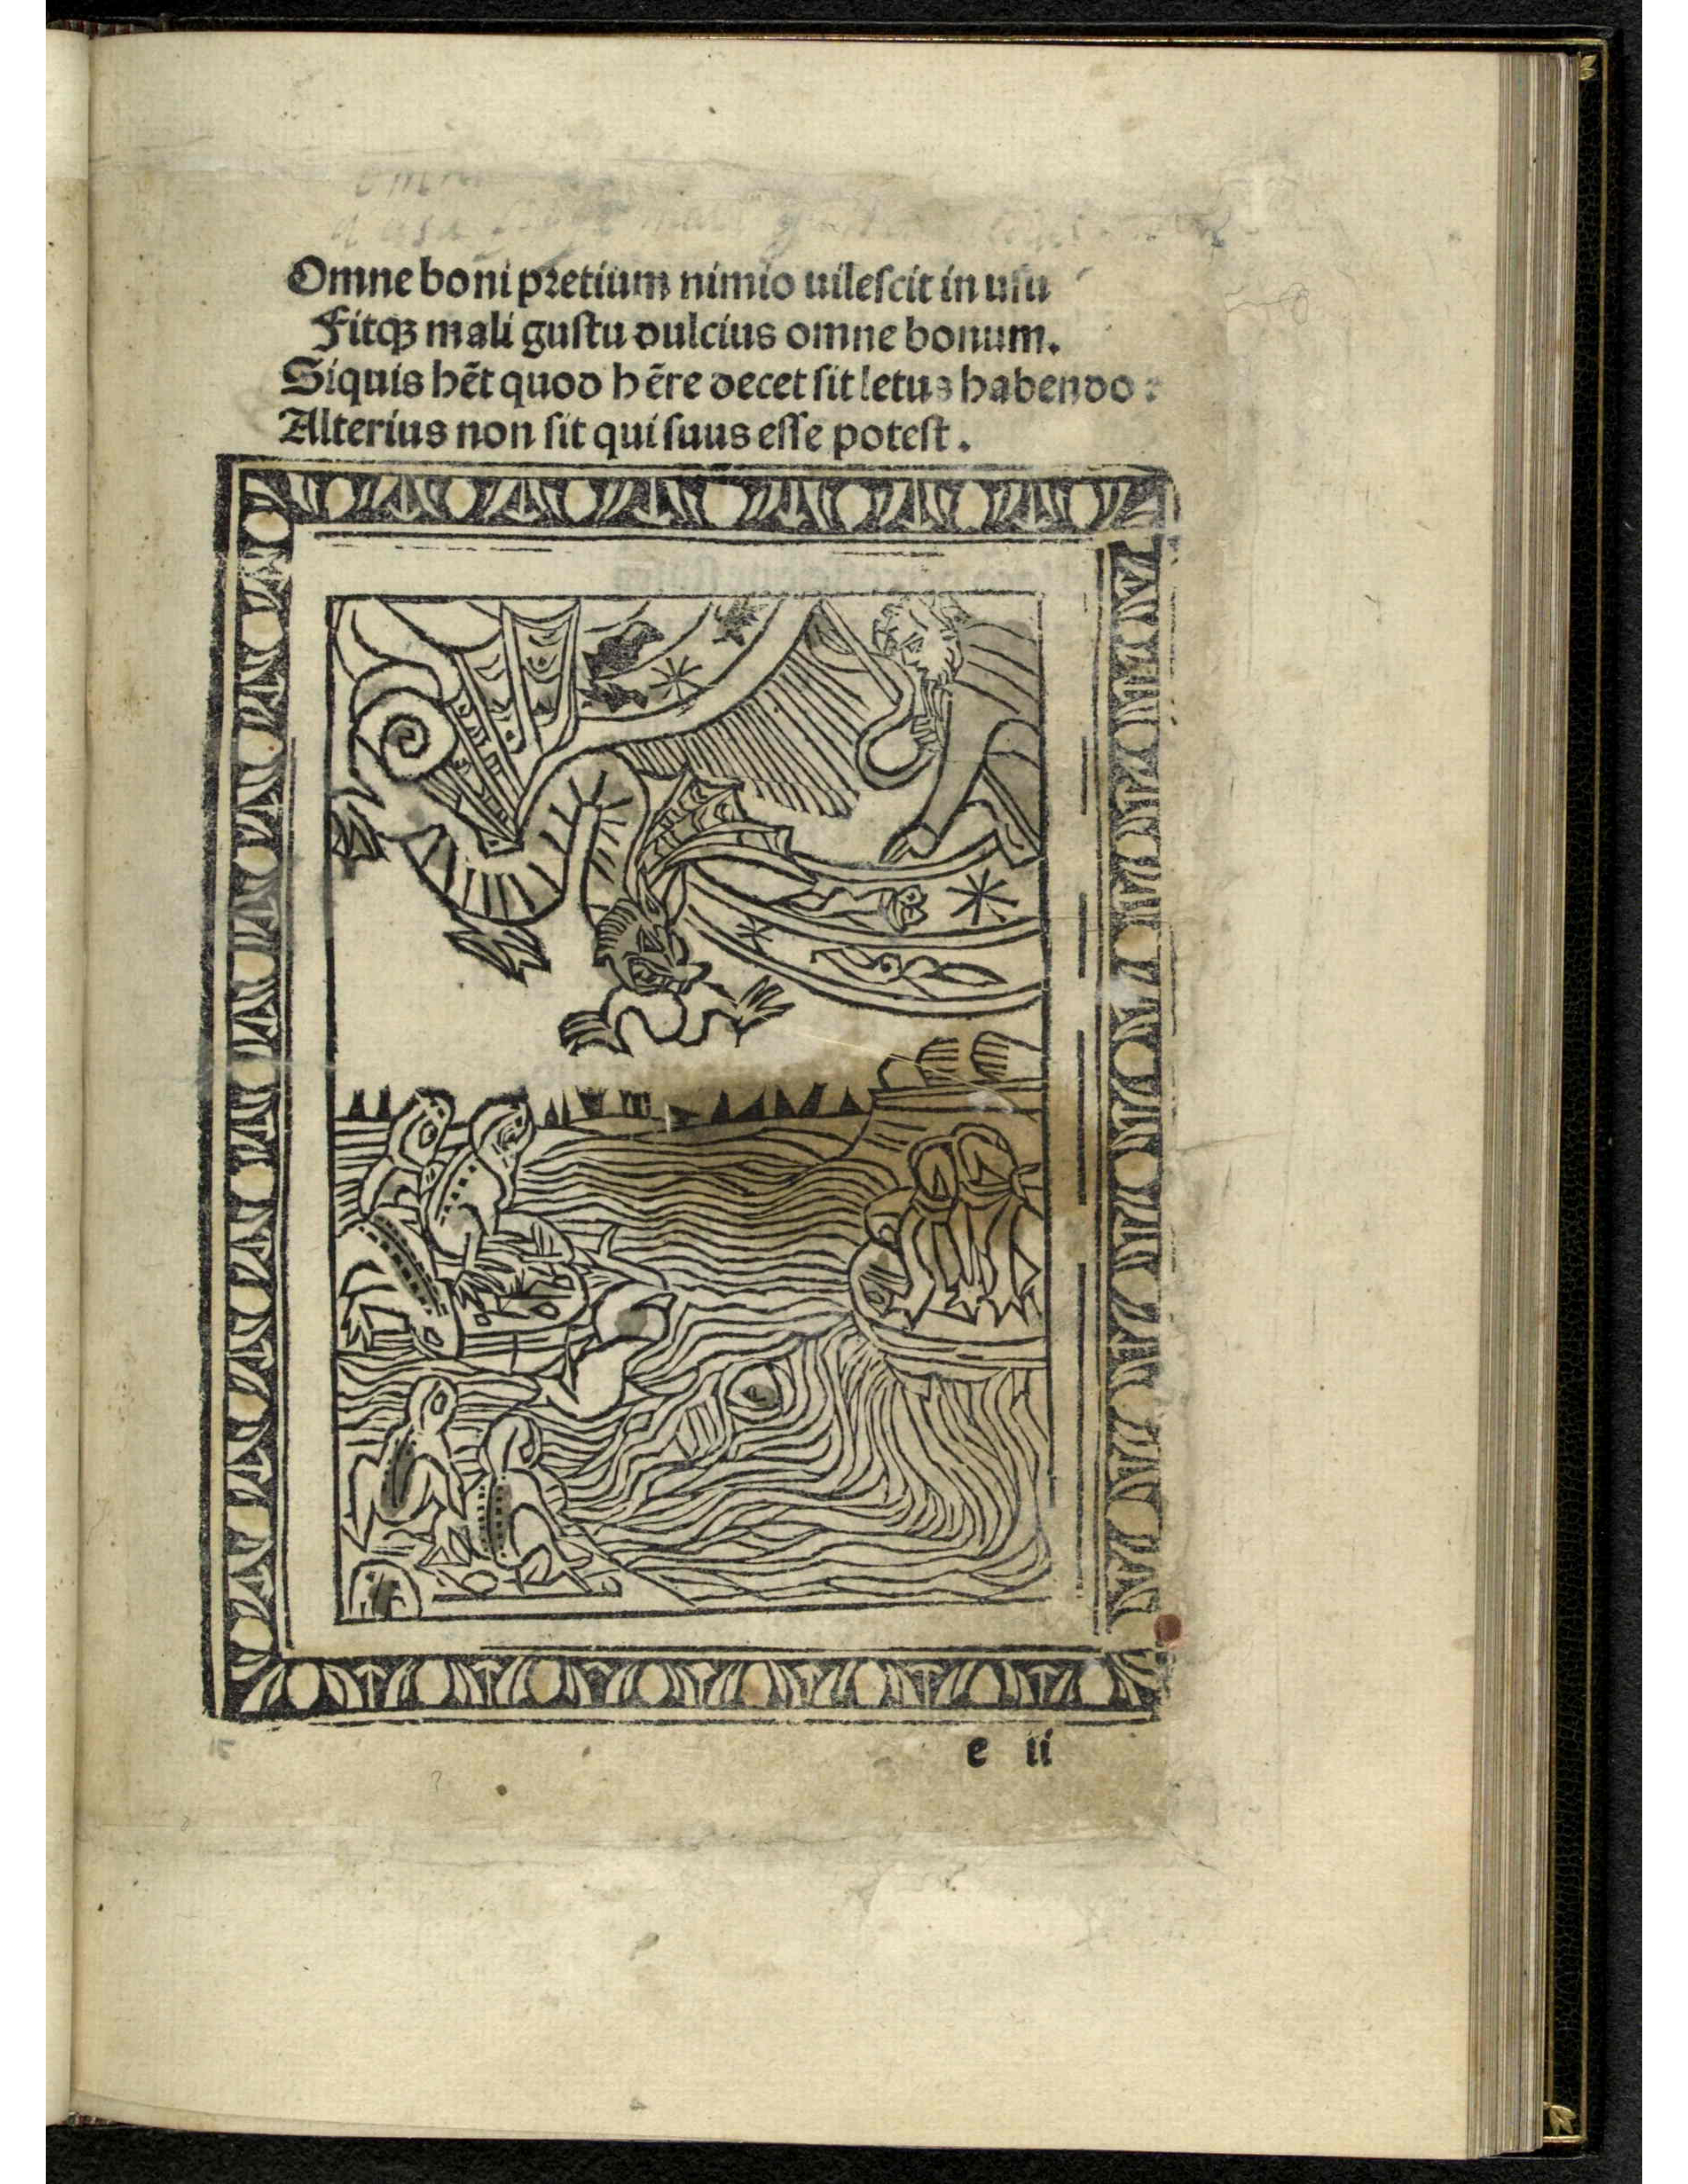 Omne boni pretium nimio uilescit in usu
Fitqȝ mali gustu dulcius omne bonum.
Siquis hēt quod hēre decet sit letus habendo:
Alterius non sit qui suus esse potest.
e ii